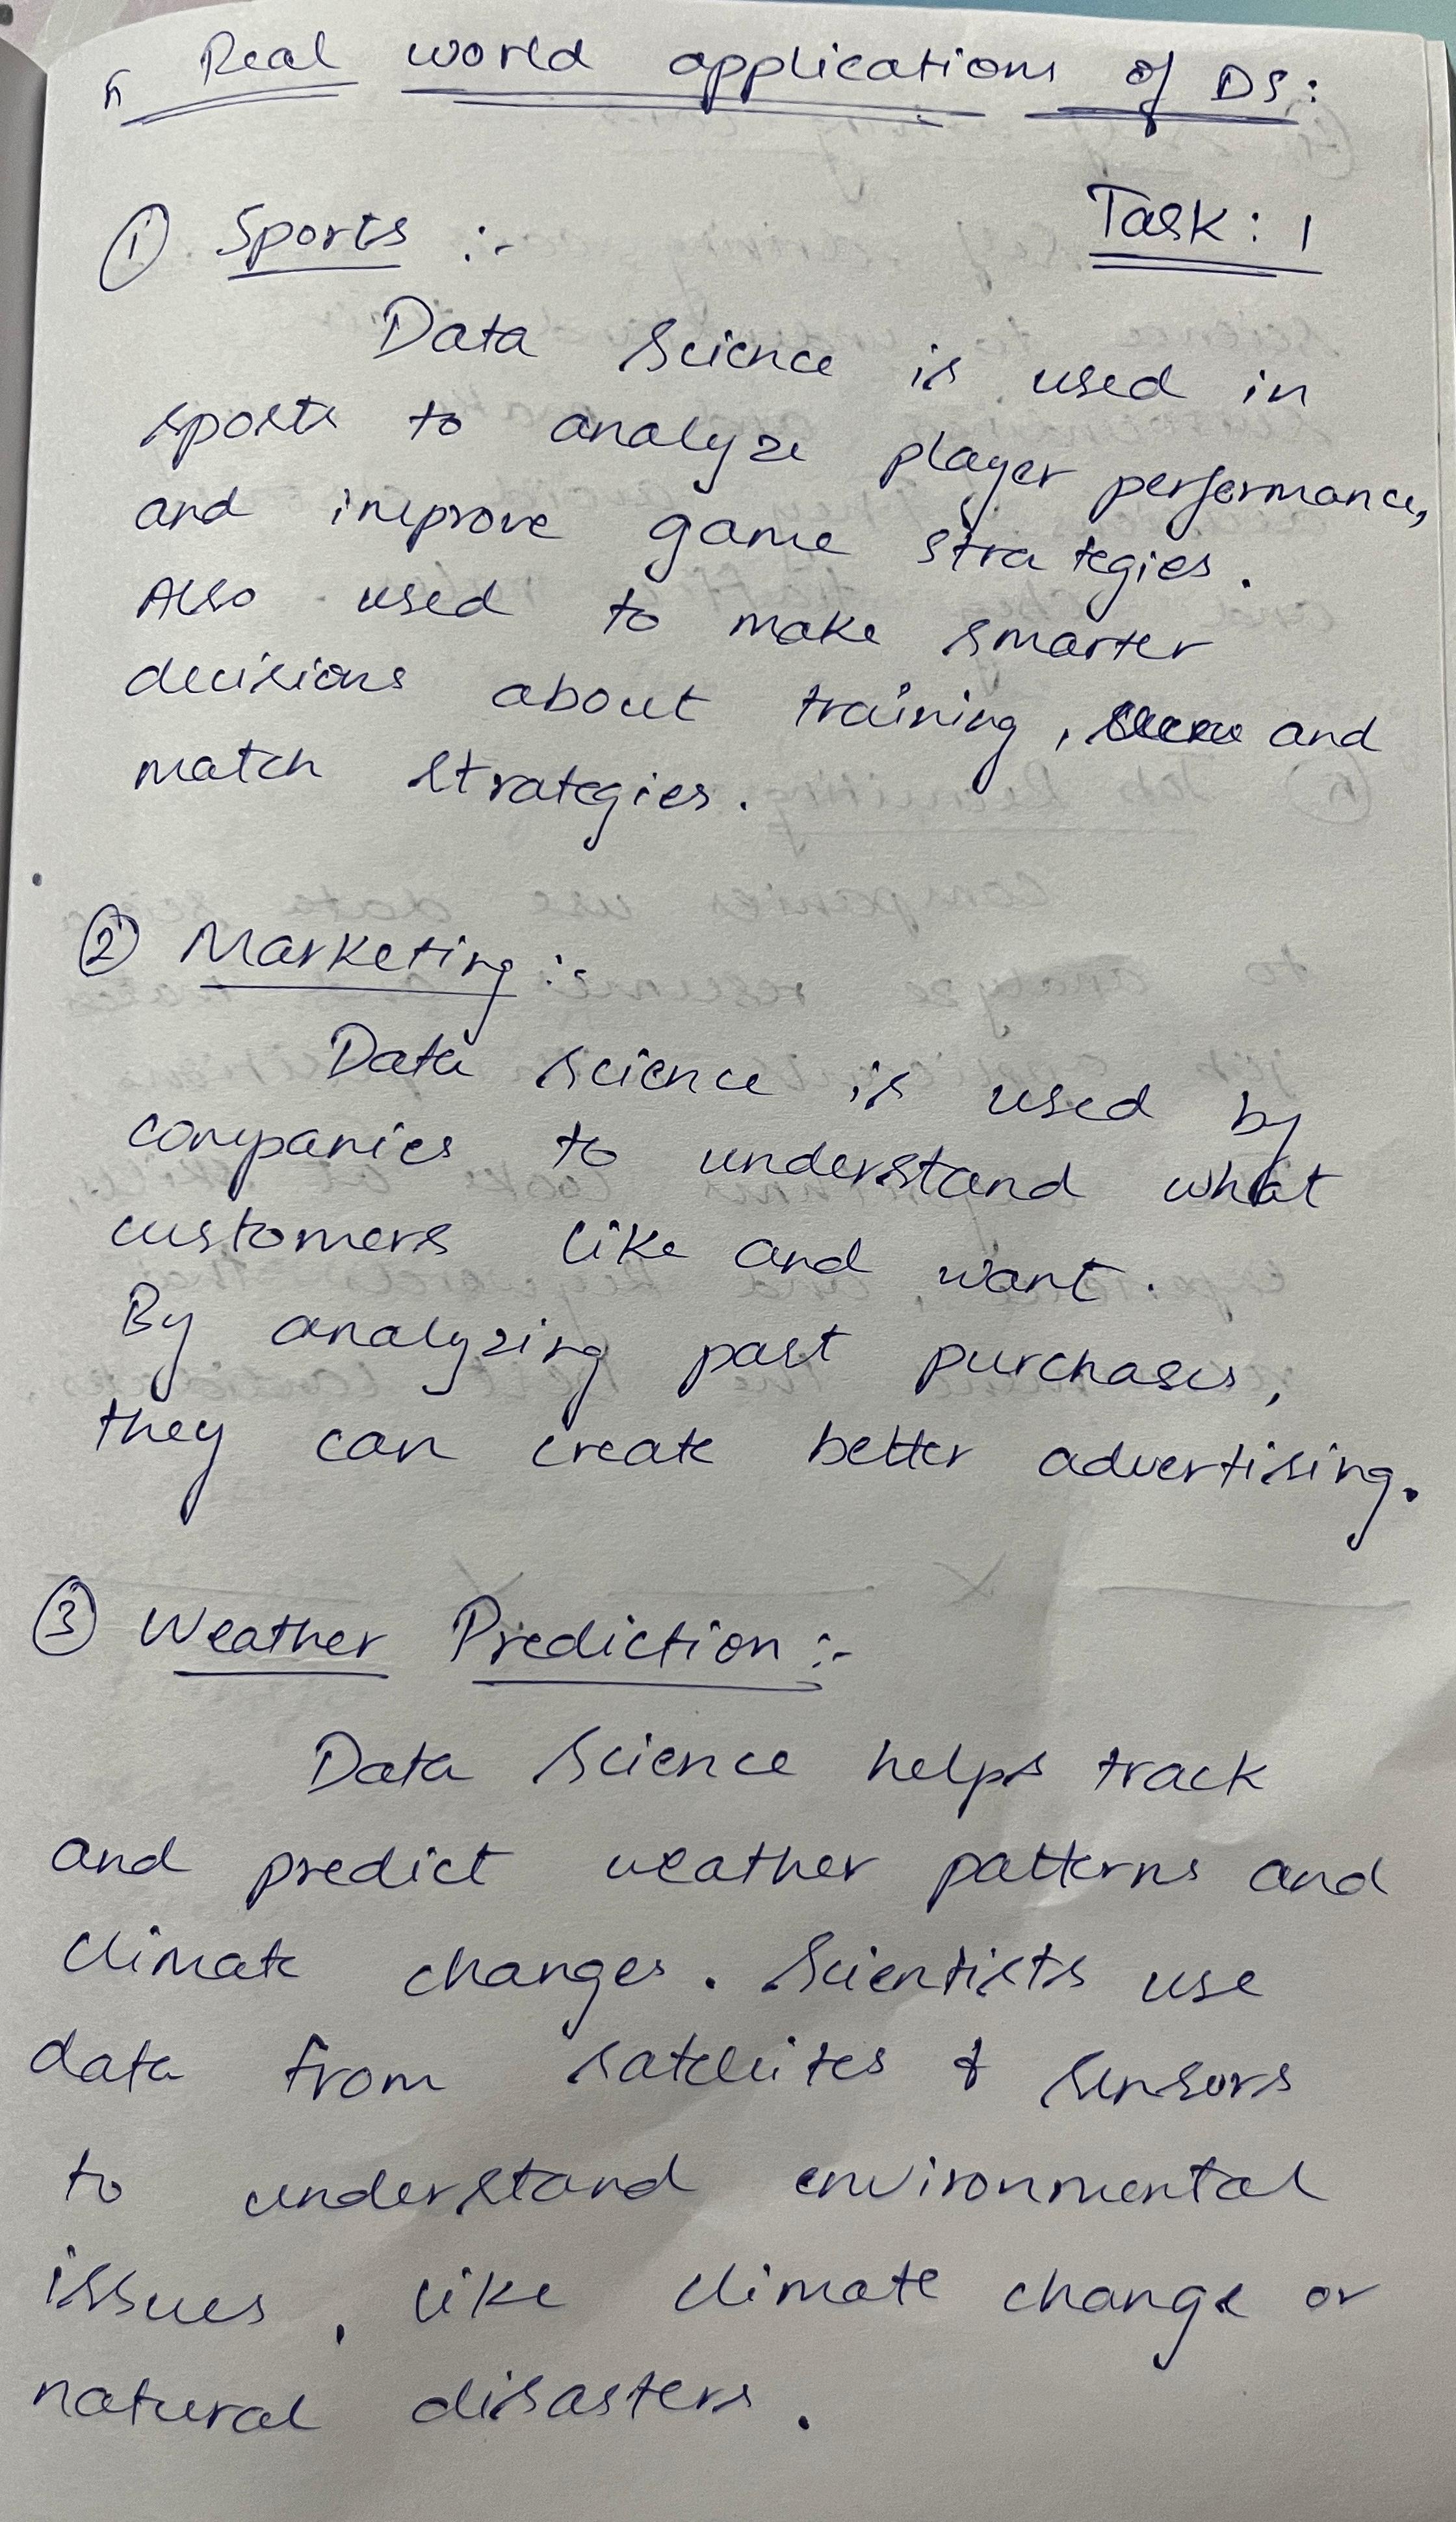 Real world applications of DS:
Task: 1
① Sports :-
Data Science is used in
sports to analyze player performance,
and improve game strategies.
Also used to make smarter
decisions about training, and
match strategies.
② Marketing :-
Data science is used by
companies to understand what
customers like and want.
By analyzing past purchases,
they can create better advertising.
③ Weather Prediction :-
Data Science helps track
and predict weather patterns and
climate changes. Scientists use
data from satellites & sensors
to understand environmental
issues, like climate change or
natural disasters.